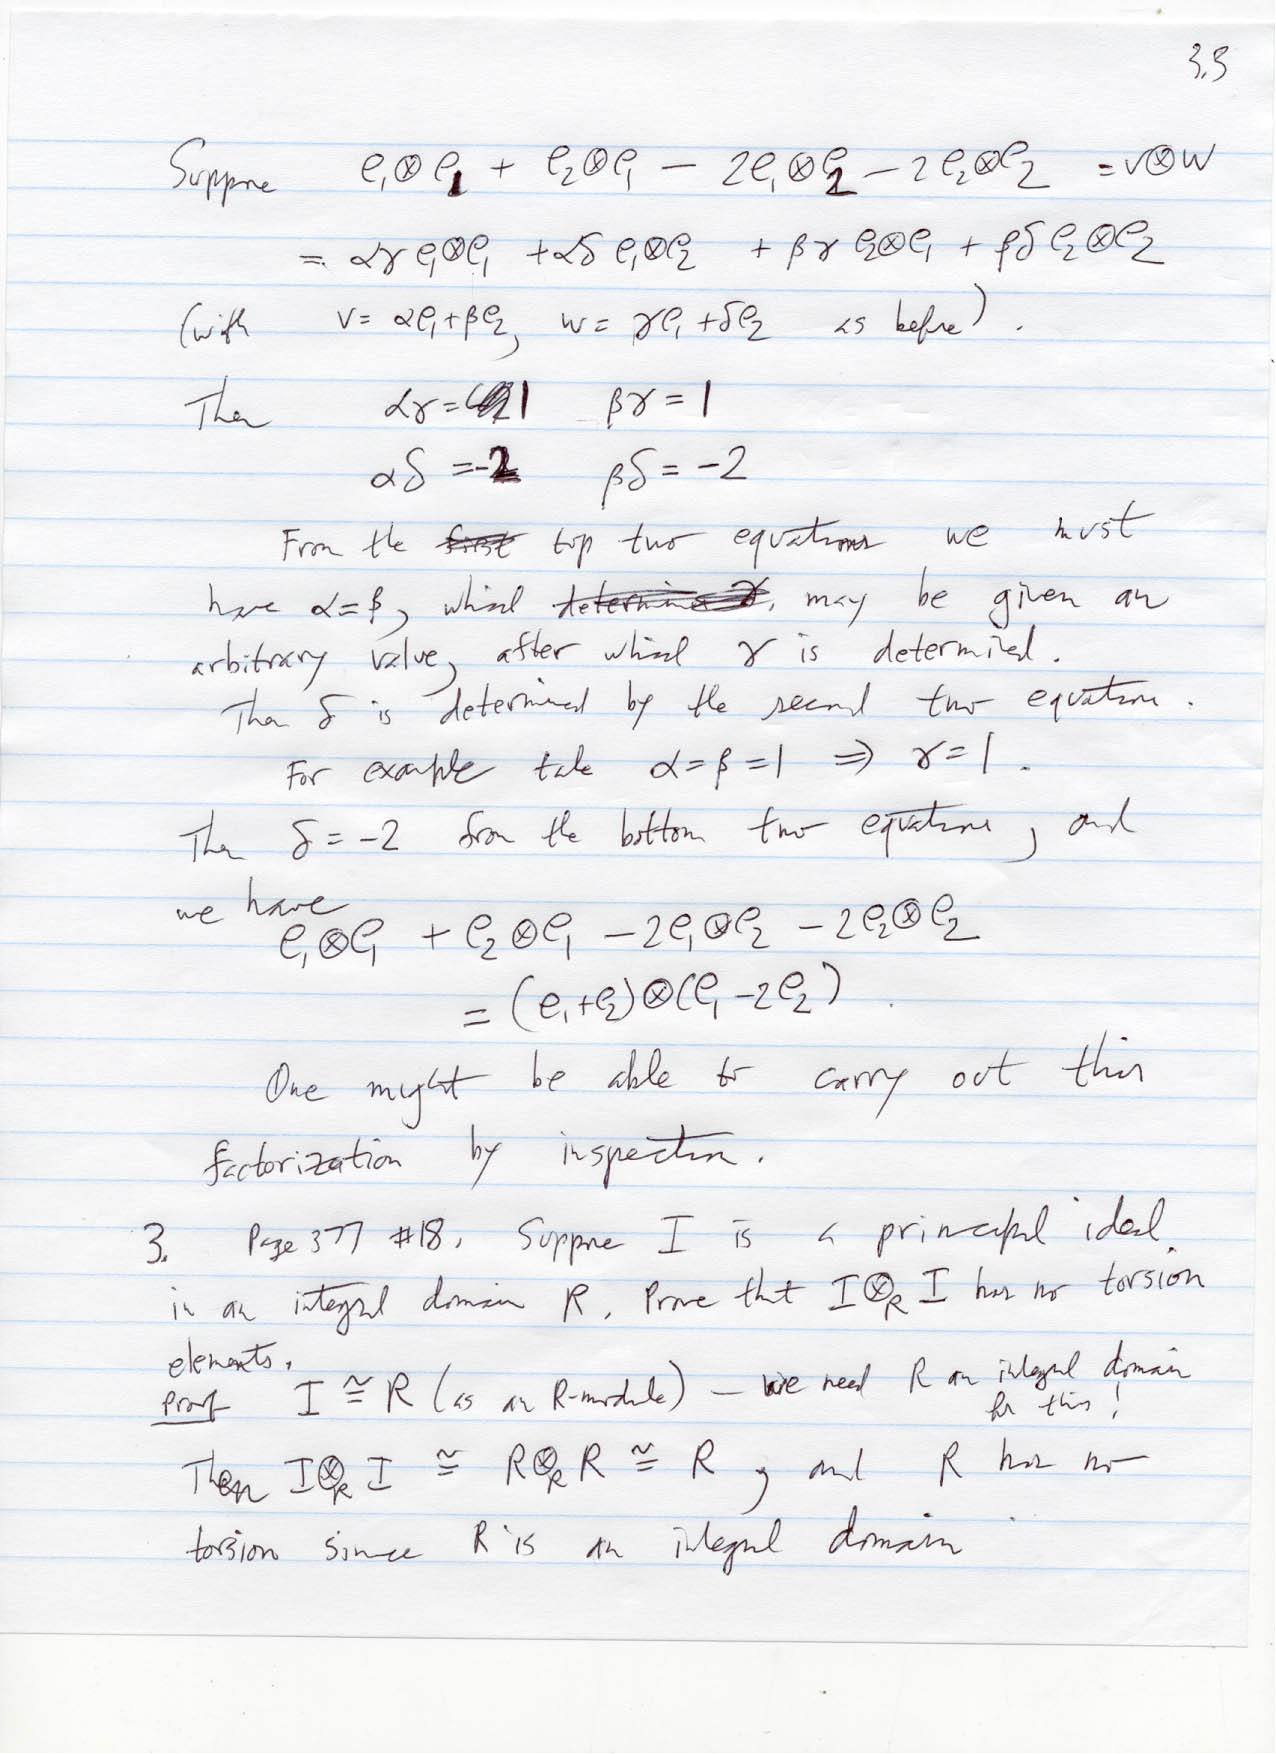 3.3
Suppose e₁⊗e₁ + e₂⊗e₁ − 2e₁⊗e₂ − 2e₂⊗e₂ = v⊗w
= αγ e₁⊗e₁ + αδ e₁⊗e₂ + βγ e₂⊗e₁ + βδ e₂⊗e₂
(with v = αe₁+βe₂, w = γe₁+δe₂ as before).
Then αγ = 1 βγ = 1
αδ = -2 βδ = -2
From the top two equations we must
have α=β, which may be given an
arbitrary value, after which γ is determined.
Then δ is determined by the second two equations.
For example take α=β=1 ⇒ γ=1.
Then δ=-2 from the bottom two equations, and
we have
e₁⊗e₁ + e₂⊗e₁ − 2e₁⊗e₂ − 2e₂⊗e₂
= (e₁+e₂)⊗(e₁−2e₂).
One might be able to carry out this
factorization by inspection.
3. Page 377 #18. Suppose I is a principal ideal
in an integral domain R. Prove that I⊗_R I has no torsion
elements.
Proof I ≅ R (as an R-module) – we need R an integral domain
for this!
Then I⊗_R I ≅ R⊗_R R ≅ R, and R has no
torsion since R is an integral domain